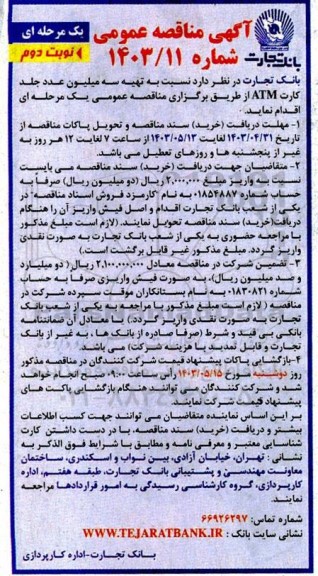 آگهی مناقصه عمومی
شماره ۱۴۰۳/۱۱
یک مرحله ای
نوبت دوم
بانک تجارت
بانک تجارت در نظر دارد نسبت به تهیه سه میلیون عدد جلد
کارت ATM از طریق برگزاری مناقصه عمومی یک مرحله ای
اقدام نماید.
۱- مهلت دریافت (خرید) سند مناقصه و تحویل پاکات مناقصه از
تاریخ ۱۴۰۳/۰۴/۳۱ لغایت ۱۴۰۳/۰۵/۱۳ از ساعت ۷ لغایت ۱۲ هر روز به
غیر از پنجشنبه ها و روزهای تعطیل می باشد.
۲- متقاضیان جهت دریافت (خرید) سند مناقصه می بایست
نسبت به واریز مبلغ ۲,۰۰۰,۰۰۰ ریال (دو میلیون ریال) صرفا به
حساب شماره ۱۸۵۴۸۸۷ به نام "کارمزد فروش اسناد مناقصه" در
یکی از شعب بانک تجارت اقدام و اصل فیش واریز آن را هنگام
دریافت(خرید) سند مناقصه تحویل نمایند. (لازم است مبلغ مذکور
با مراجعه حضوری به یکی از شعب بانک تجارت به صورت نقدی
واریز گردد. مبلغ مذکور غیر قابل برگشت است.)
۳- تضمین شرکت در مناقصه معادل ۲,۱۰۰,۰۰۰,۰۰۰ ریال( دو میلیارد
و صد میلیون ریال)، به صورت فیش واریزی صرفا به حساب
شماره ۰۱۸۳۰۸۲۱ به نام بستانکاران موقت سپرده شرکت در
مناقصه ( لازم است مبلغ مذکور با مراجعه به یکی از شعب بانک
تجارت به صورت نقدی واریز گردد ) یا معادل آن ضمانتنامه
بانکی بی قید و شرط (صرفا صادره از بانک ها، به غیر از بانک
تجارت و قابل تمدید با هزینه شرکت) می باشد.
۴-بازگشایی پاکات پیشنهاد قیمت شرکت کنندگان در مناقصه مذکور
روز دوشنبه مورخ ۱۴۰۳/۰۵/۱۵ رأس ساعت ۰۹:۰۰ صبح انجام خواهد
شد و شرکت کنندگان می توانند هنگام بازگشایی پاکت های
پیشنهاد قیمت شرکت نمایند.
بر این اساس نماینده متقاضیان می توانند جهت کسب اطلاعات
بیشتر و دریافت (خرید) سند مناقصه، با در دست داشتن کارت
شناسایی معتبر و معرفی نامه و مطابق با شرایط فوق الذکر به
نشانی : تهران، خیابان آزادی، بین نواب و اسکندری، ساختمان
معاونت مهندسی و پشتیبانی بانک تجارت، طبقه هفتم، اداره
کارپردازی، گروه کارشناسی رسیدگی به امور قراردادها مراجعه
نمایند.
شماره تماس: ۶۶۹۲۶۲۹۷
نشانی سایت بانک : WWW.TEJARATBANK.IR
بانک تجارت-اداره کارپردازی